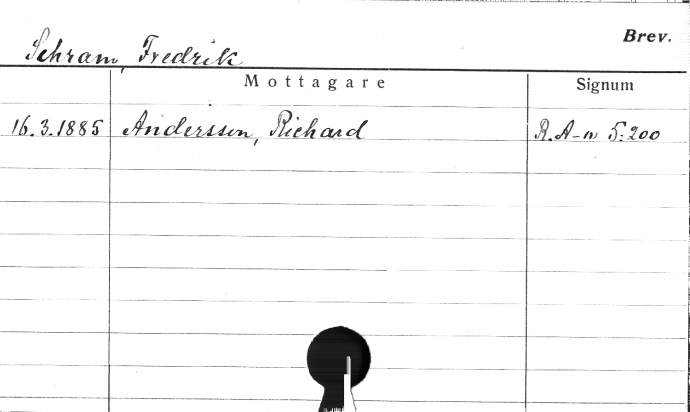 Brev.
Schram, Fredrik
Mottagare Signum
16.3.1885 Andersson, Richard R.A-n 5:200